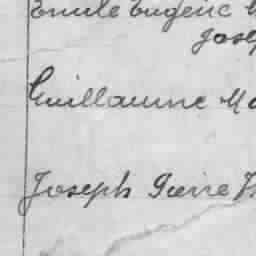 Emile Eugene
Jose
Guillaume Ma
Joseph Pierre